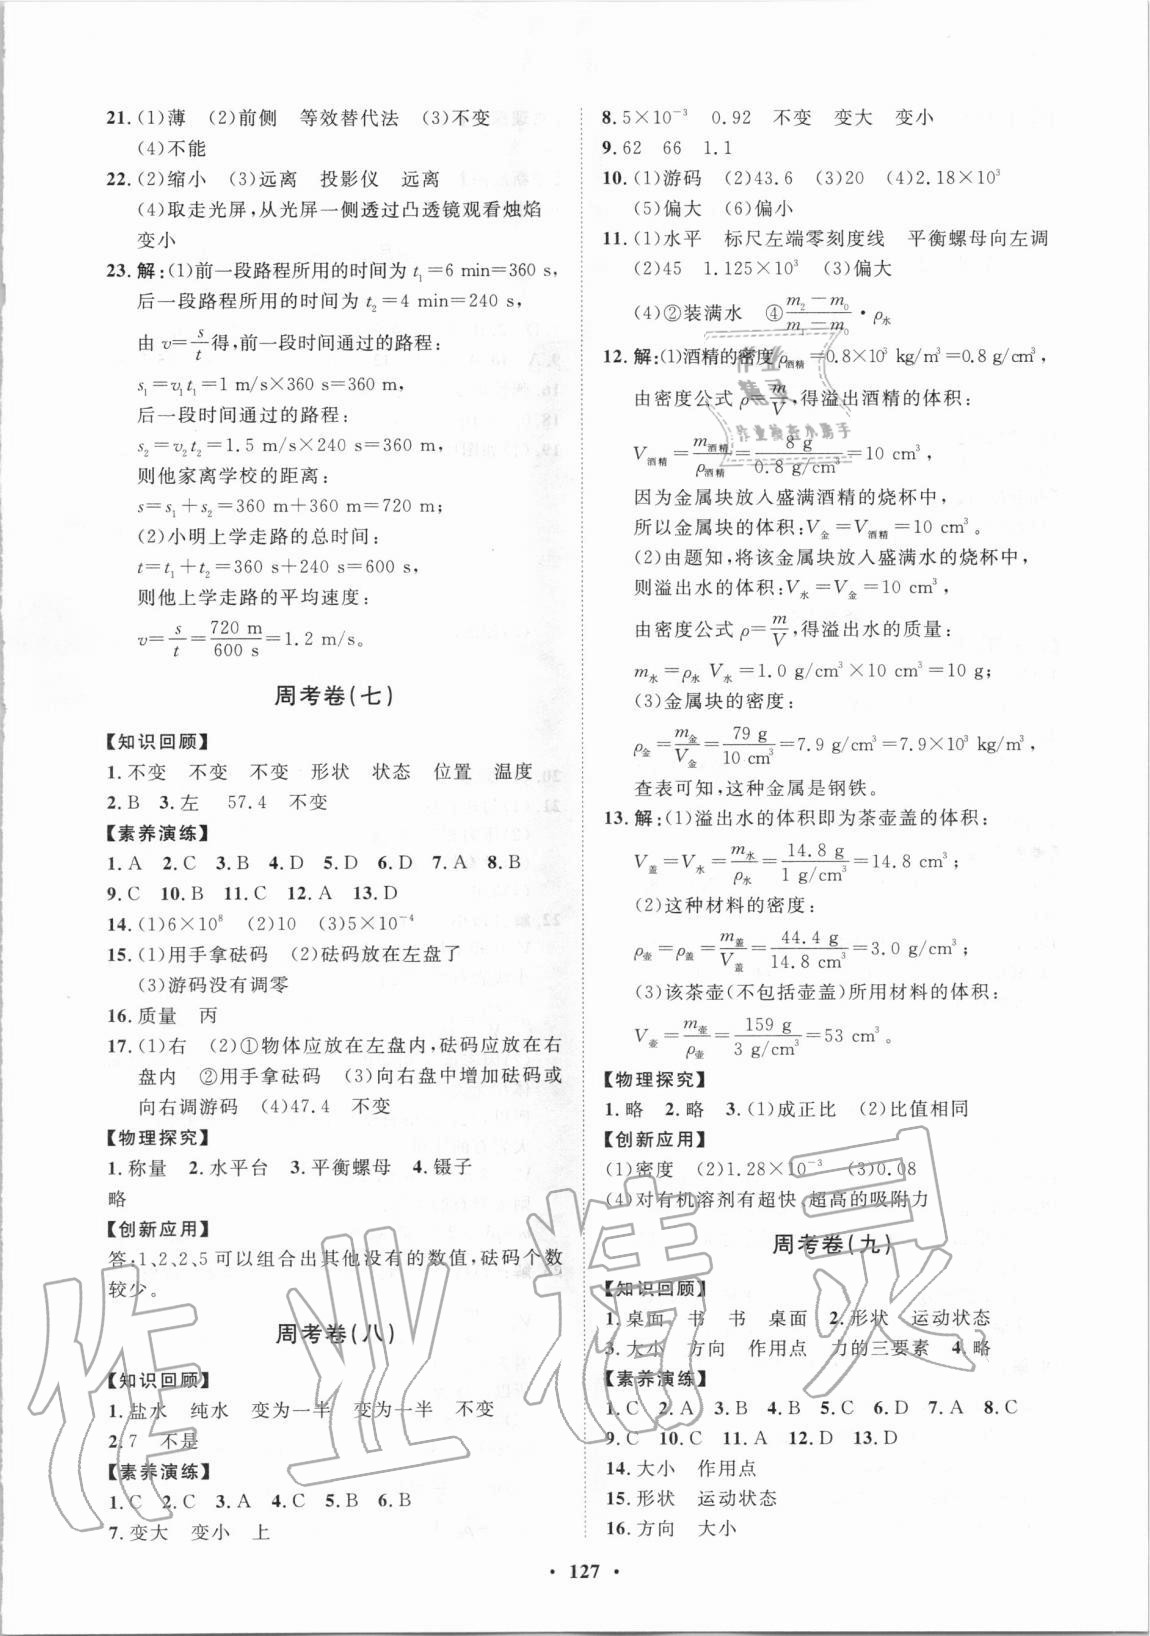 21.(1)薄　(2)前侧　等效替代法　(3)不变
(4)不能
22.(2)缩小　(3)远离　投影仪　远离
(4)取走光屏,从光屏一侧透过凸透镜观看烛焰
变小
23.解:(1)前一段路程所用的时间为 t₁=6 min=360 s,
后一段路程所用的时间为 t₂=4 min=240 s,
由 v=s/t得,前一段时间通过的路程:
s₁=v₁t₁=1 m/s×360 s=360 m;
后一段时间通过的路程:
s₂=v₂t₂=1.5 m/s×240 s=360 m,
则他家离学校的距离:
s=s₁+s₂=360 m+360 m=720 m;
(2)小明上学走路的总时间:
t=t₁+t₂=360 s+240 s=600 s,
则他上学走路的平均速度:
v=s/t=720 m/600 s=1.2 m/s。
周考卷(七)
【知识回顾】
1.不变　不变　不变　形状　状态　位置　温度
2.B　3.左　57.4　不变
【素养演练】
1.A　2.C　3.B　4.D　5.D　6.D　7.A　8.B
9.C　10.B　11.C　12.A　13.D
14.(1)6×10⁸　(2)10　(3)5×10⁻⁴
15.(1)用手拿砝码　(2)砝码放在左盘了
(3)游码没有调零
16.质量　丙
17.(1)右　(2)①物体应放在左盘内,砝码应放在右
盘内　②用手拿砝码　(3)向右盘中增加砝码或
向右调游码　(4)47.4　不变
【物理探究】
1.称量　2.水平台　3.平衡螺母　4.镊子
略
【创新应用】
答:1、2、2、5 可以组合出其他没有的数值,砝码个数
较少。
周考卷(八)
【知识回顾】
1.盐水　纯水　变为一半　变为一半　不变
2.7　不是
【素养演练】
1.C　2.C　3.A　4.C　5.B　6.B
7.变大　变小　上
8.5×10⁻³　0.92　不变　变大　变小
9.62　66　1.1
10.(1)游码　(2)43.6　(3)20　(4)2.18×10³
(5)偏大　(6)偏小
11.(1)水平　标尺左端零刻度线　平衡螺母向左调
(2)45　1.125×10³　(3)偏大
(4)②装满水　④(m₂−m₀)/(m₁−m₀)·ρ水
12.解:(1)酒精的密度 ρ酒精=0.8×10³ kg/m³=0.8 g/cm³,
由密度公式 ρ=m/V,得溢出酒精的体积:
V酒精=m酒精/ρ酒精=8 g/0.8 g/cm³=10 cm³,
因为金属块放入盛满酒精的烧杯中,
所以金属块的体积:V金=V酒精=10 cm³。
(2)由题知,将该金属块放入盛满水的烧杯中,
则溢出水的体积:V水=V金=10 cm³,
由密度公式 ρ=m/V,得溢出水的质量:
m水=ρ水 V水=1.0 g/cm³×10 cm³=10 g;
(3)金属块的密度:
ρ金=m金/V金=79 g/10 cm³=7.9 g/cm³=7.9×10³ kg/m³,
查表可知,这种金属是钢铁。
13.解:(1)溢出水的体积即为茶壶盖的体积:
V盖=V水=m水/ρ水=14.8 g/1 g/cm³=14.8 cm³;
(2)这种材料的密度:
ρ壶=ρ盖=m盖/V盖=44.4 g/14.8 cm³=3.0 g/cm³;
(3)该茶壶(不包括壶盖)所用材料的体积:
V壶=m壶/ρ壶=159 g/3 g/cm³=53 cm³。
【物理探究】
1.略　2.略　3.(1)成正比　(2)比值相同
【创新应用】
(1)密度　(2)1.28×10⁻³　(3)0.08
(4)对有机溶剂有超快、超高的吸附力
周考卷(九)
【知识回顾】
1.桌面　书　书　桌面　2.形状　运动状态
3.大小　方向　作用点　力的三要素　4.略
【素养演练】
1.C　2.A　3.B　4.B　5.D　6.D　7.A　8.C
9.C　10.C　11.A　12.D　13.D
14.大小　作用点
15.形状　运动状态
16.方向　大小
· 127 ·
作业精灵
作业
精灵
作业检查小助手